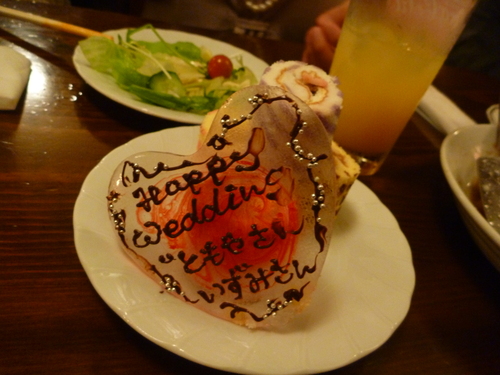 Happy
Wedding
とももさん
いずみさん